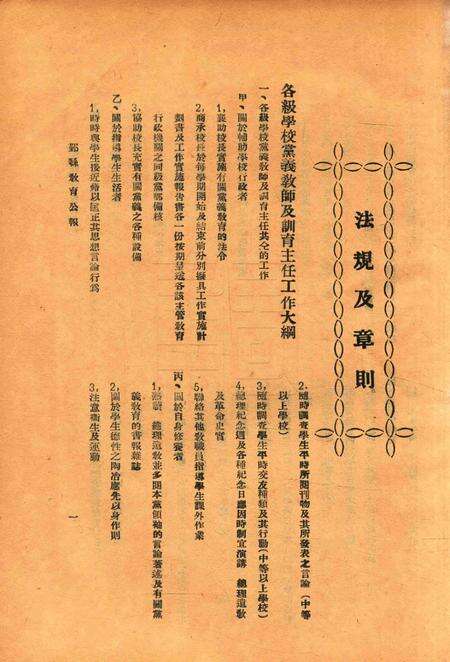 法規及章則
各級學校黨義教師及訓育主任工作大綱
一、各級學校黨義教師及訓育主任共仝的工作
甲、關於輔助學校行政者
1,襄助校長實施有關黨義教育的法令
2,商承校長於每學期開始及結束前分別擬具工作實施計
劃書及工作實施報告書各一份按期呈送各該主管教育
行政機關之同級黨部備核
3,協助校長充實有關黨義之各種設備
乙、關於指導學生生活者
1,時時與學生接近藉以匡正其思想言論行爲
2,隨時調查學生平時所閱刊物及其所發表之言論(中等
以上學校)
3,隨時調查學生平時交友種類及其行動(中等以上學校)
4,總理紀念週及各種紀念日應因時制宜演講 總理遺敎
及革命史實
5,聯絡其他敎職員指導學生課外作業
丙、關於自身修養者
1,總理遺敎並多閱本黨領袖的言論著述及有關黨
義敎育的書報雜誌
2,關於學生德性之陶冶應先以身作則
3,注意衛生及運動
鄞縣教育公報
一